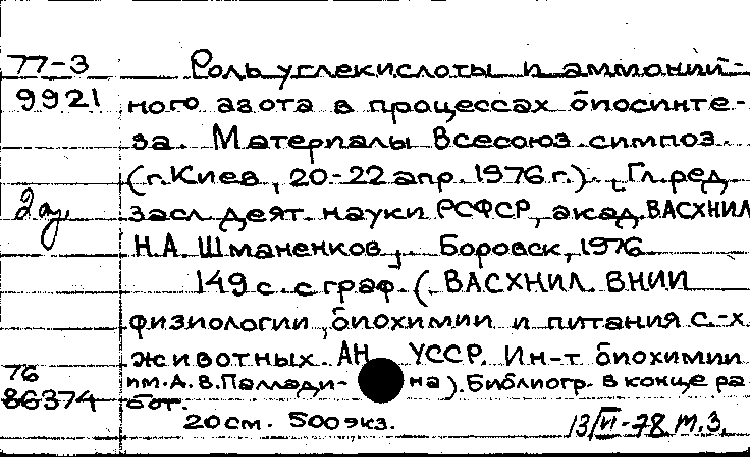 77-3 Роль углекислоты и аммоний-
9921 ного азота в процессах биосинте-
за. Материалы Всесоюз. симпоз.
(г. Киев, 20-22 апр. 1976 г.). [Гл. ред.
засл. деят. науки РСФСР, акад. ВАСХНИЛ
Н.А. Шманенков]. Боровск, 1976
149 с. с граф. (ВАСХНИЛ. ВНИИ
физиологии, биохимии и питания с.-х.
животных. АН УССР. Ин-т биохимии
76 им. А. В. Паллади- на). Библиогр. в конце ра
86374 бот.
20 см. 500 экз. 13/VI-78 М.З.